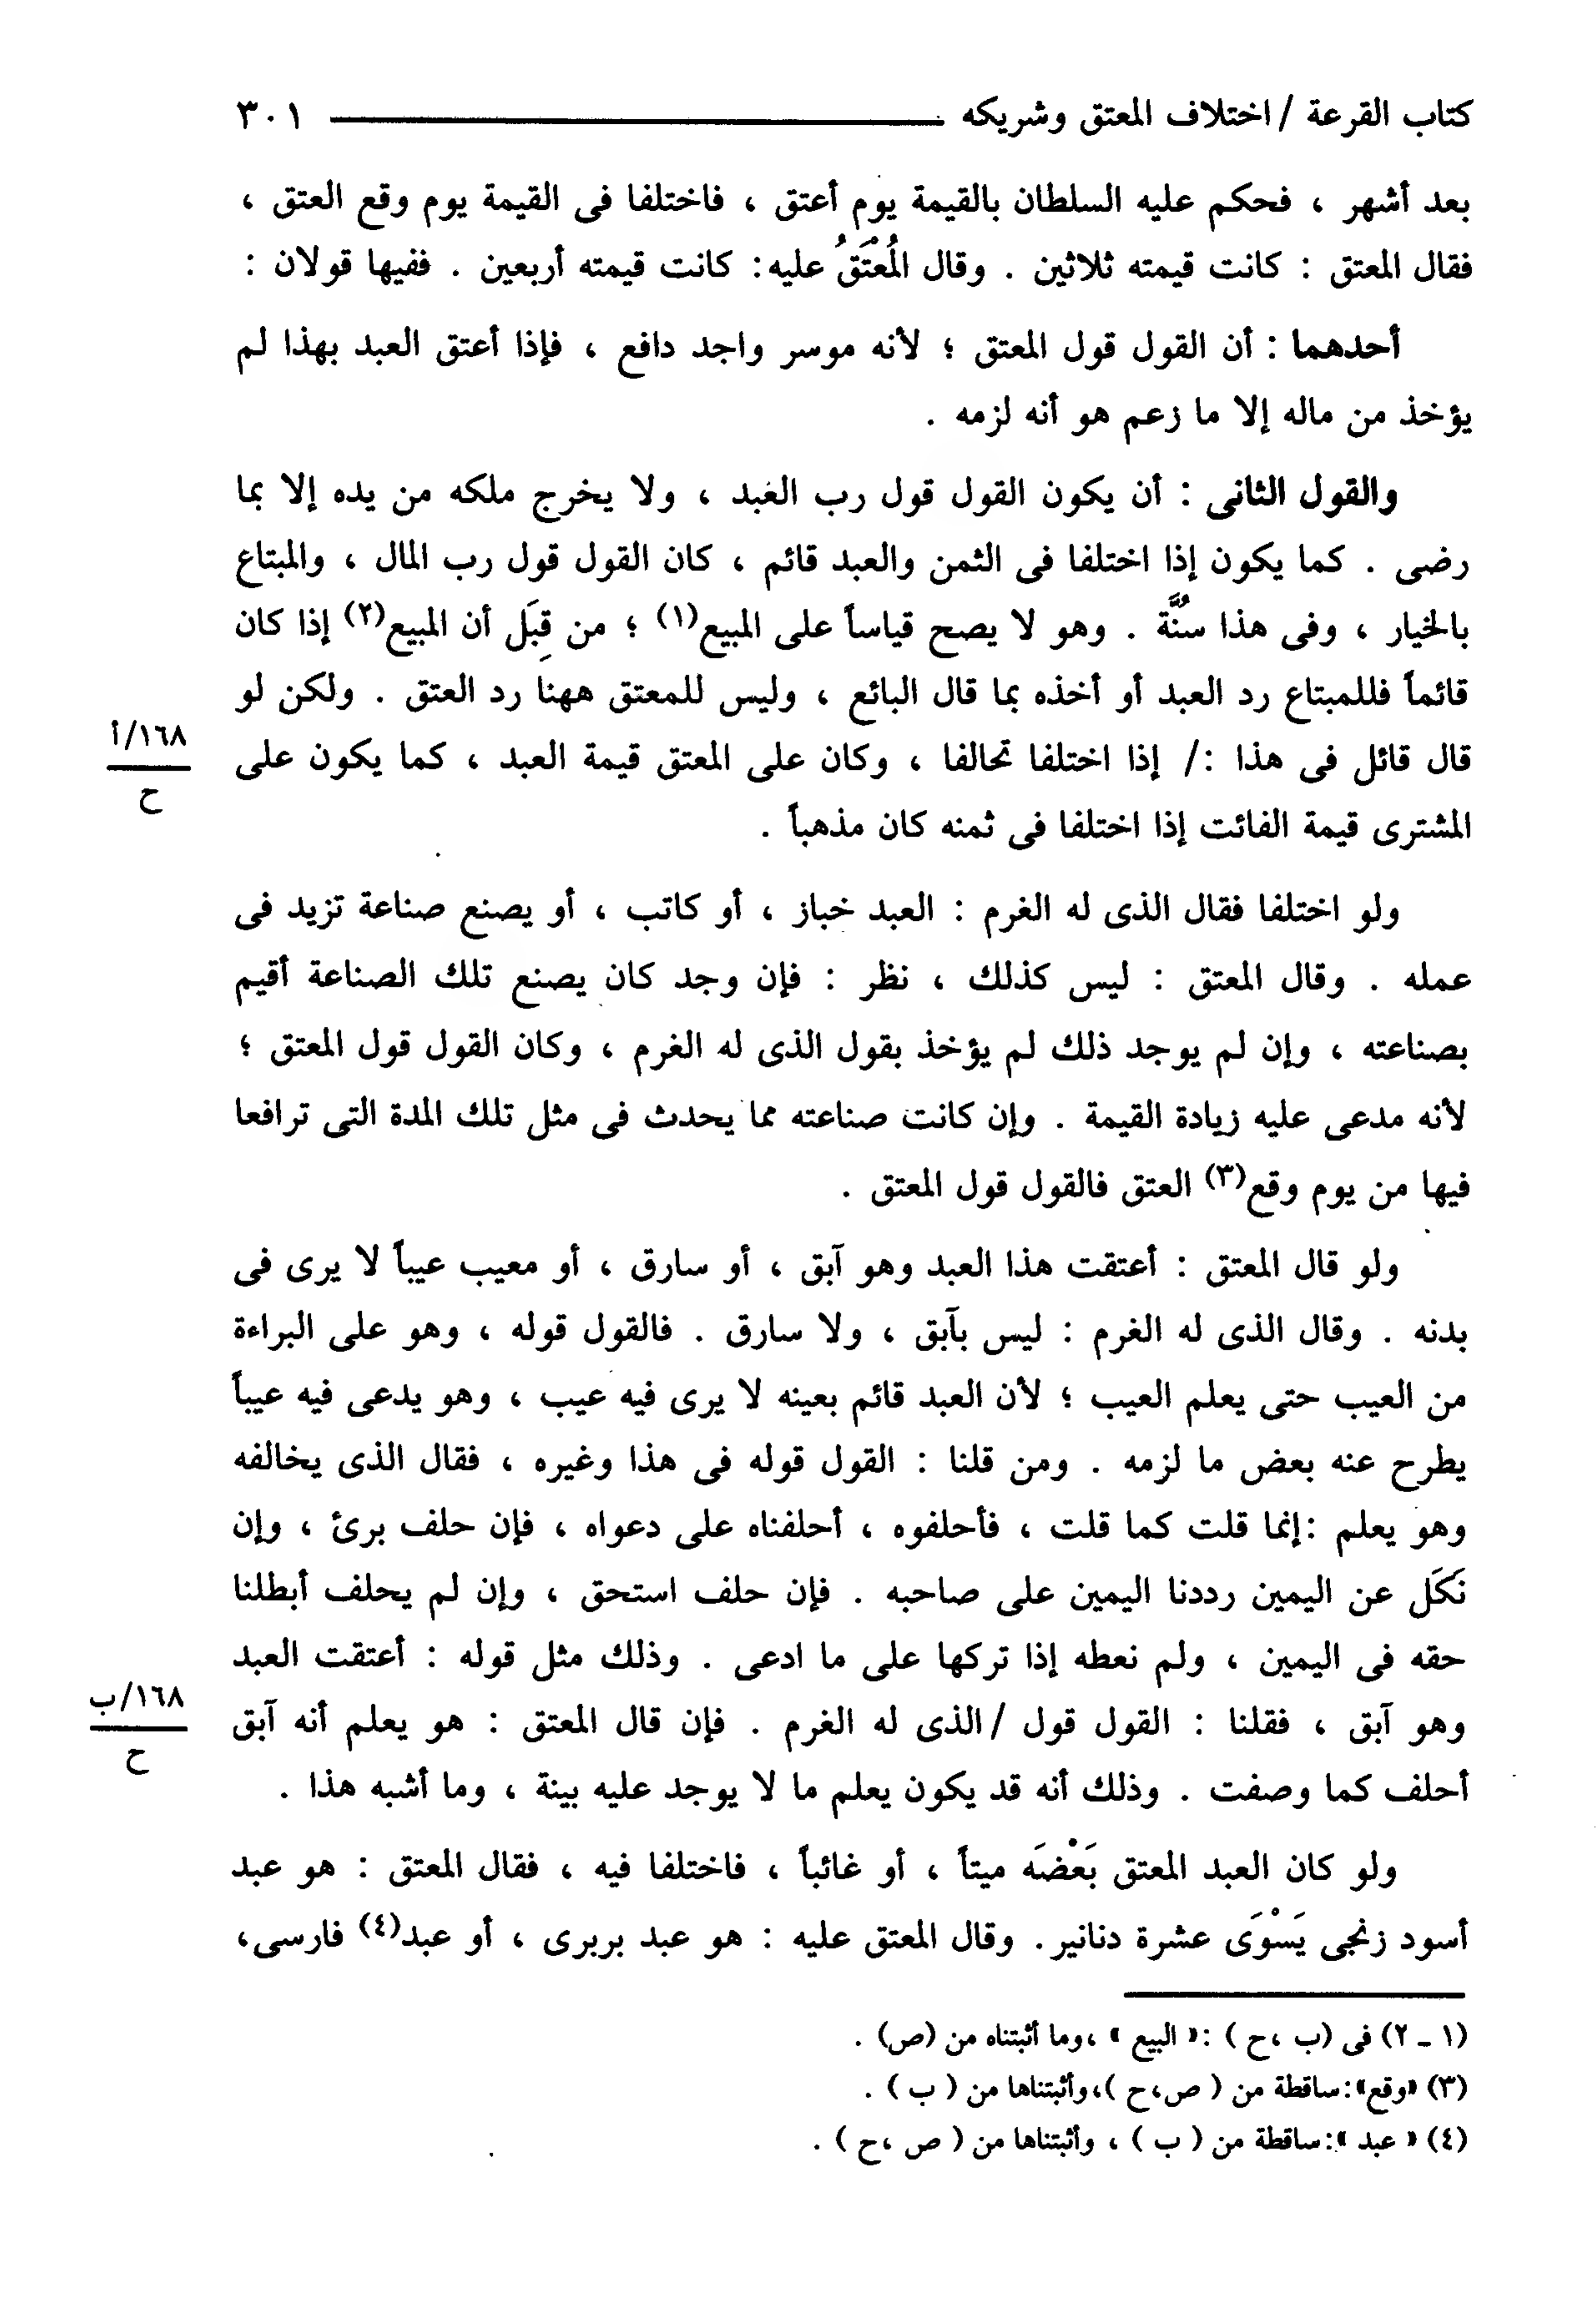 كتاب القرعة / اختلاف المعتق وشريكه ٣٠١
بعد أشهر ، فحكم عليه السلطان بالقيمة يوم أعتق ، فاختلفا فى القيمة يوم وقع العتق ،
فقال المعتق : كانت قيمته ثلاثين . وقال المُعْتَقُ عليه: كانت قيمته أربعين . ففيها قولان :
أحدهما : أن القول قول المعتق ؛ لأنه موسر واجد دافع ، فإذا أعتق العبد بهذا لم
يؤخذ من ماله إلا ما زعم هو أنه لزمه .
والقول الثانى : أن يكون القول قول رب العبد ، ولا يخرج ملكه من يده إلا بما
رضى . كما يكون إذا اختلفا فى الثمن والعبد قائم ، كان القول قول رب المال ، والمبتاع
بالخيار ، وفى هذا سُنَّة . وهو لا يصح قياساً على المبيع(١) ؛ من قِبَل أن المبيع(٢) إذا كان
قائماً فللمبتاع رد العبد أو أخذه بما قال البائع ، وليس للمعتق ههنا رد العتق . ولكن لو
١٦٨/أ
ح
قال قائل فى هذا :/ إذا اختلفا تحالفا ، وكان على المعتق قيمة العبد ، كما يكون على
المشترى قيمة الفائت إذا اختلفا فى ثمنه كان مذهباً .
ولو اختلفا فقال الذى له الغرم : العبد خباز ، أو كاتب ، أو يصنع صناعة تزيد فى
عمله . وقال المعتق : ليس كذلك ، نظر : فإن وجد كان يصنع تلك الصناعة أقيم
بصناعته ، وإن لم يوجد ذلك لم يؤخذ بقول الذى له الغرم ، وكان القول قول المعتق ؛
لأنه مدعى عليه زيادة القيمة . وإن كانت صناعته مما يحدث فى مثل تلك المدة التى ترافعا
فيها من يوم وقع(٣) العتق فالقول قول المعتق .
ولو قال المعتق : أعتقت هذا العبد وهو آبق ، أو سارق ، أو معيب عيباً لا يرى فى
بدنه . وقال الذى له الغرم : ليس بآبق ، ولا سارق . فالقول قوله ، وهو على البراءة
من العيب حتى يعلم العيب ؛ لأن العبد قائم بعينه لا يرى فيه عيب ، وهو يدعى فيه عيباً
يطرح عنه بعض ما لزمه . ومن قلنا : القول قوله فى هذا وغيره ، فقال الذى يخالفه
وهو يعلم :إنما قلت كما قلت ، فأحلفوه ، أحلفناه على دعواه ، فإن حلف برئ ، وإن
نَكَل عن اليمين رددنا اليمين على صاحبه . فإن حلف استحق ، وإن لم يحلف أبطلنا
حقه فى اليمين ، ولم نعطه إذا تركها على ما ادعى . وذلك مثل قوله : أعتقت العبد
١٦٨/ب
ح
وهو آبق ، فقلنا : القول قول /الذى له الغرم . فإن قال المعتق : هو يعلم أنه آبق
أحلف كما وصفت . وذلك أنه قد يكون يعلم ما لا يوجد عليه بينة ، وما أشبه هذا .
ولو كان العبد المعتق بَعْضَه ميتاً ، أو غائباً ، فاختلفا فيه ، فقال المعتق : هو عبد
أسود زنجى يَسْوَى عشرة دنانير. وقال المعتق عليه : هو عبد بربرى ، أو عبد(٤) فارسى،
(١ ـ ٢) فى (ب ،ح ) :« البيع » ،وما أثبتناه من (ص) .
(٣) «وقع»:ساقطة من ( ص،ح )،وأثبتناها من ( ب ) .
(٤) « عبد »:ساقطة من ( ب ) ، وأثبتناها من ( ص ،ح ) .